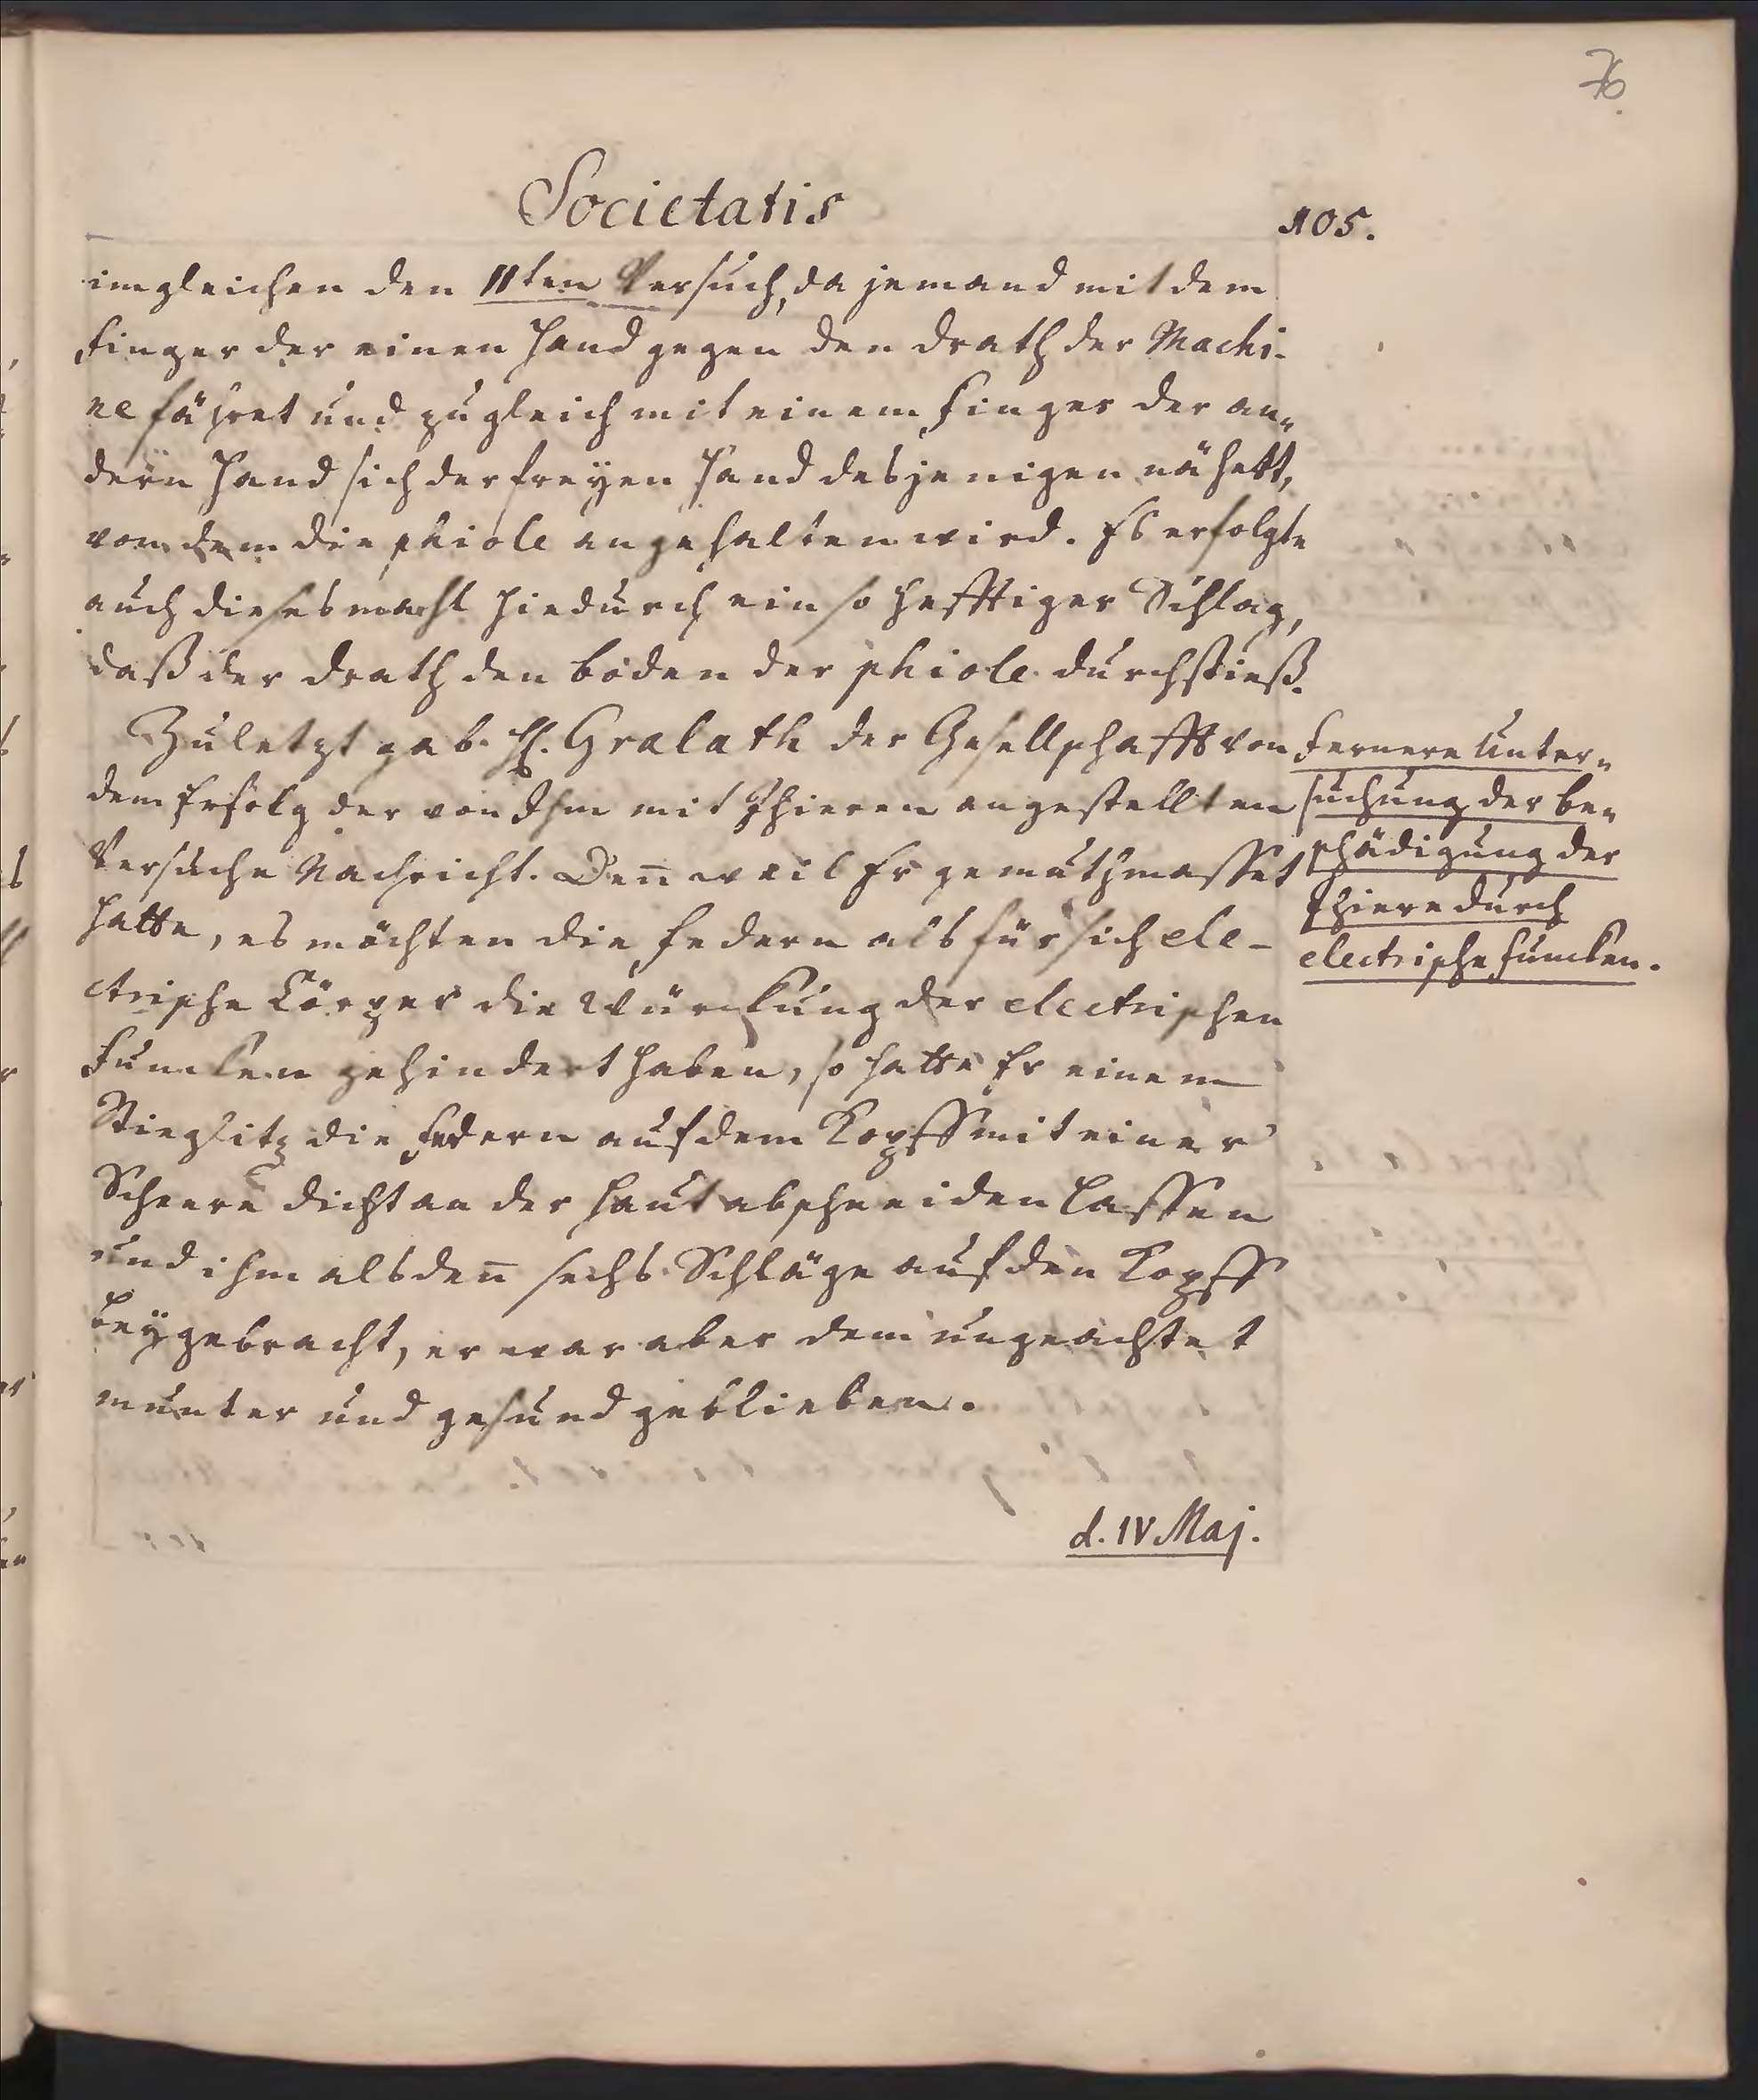 76
Societatis
105.
imgleichen den 11ten Versuch, da jemand mit dem
Finger der einen Hand gegen den Drath der Machi-
ne fähret und zugleich mit einem Finger der an-
dern Hand sich der freyen Hand desjenigen nähett,
von dem die phiole angehalten wird. Es erfolgte
auch diesesmahl hiedurch ein so hefftiger Schlag,
daß der Drath den boden der phiole durchstieß.
Zuletzt gab H. Gralath der Gesellschafft von
dem Erfolg der von Ihm mit Thieren angestellten
Versuche Nachricht. Den̄ weil Er gemuthmasset
hatte, es möchten die Federn als für sich ele-
ctrische Cörper die Würckung der electrischen
Funcken gehindert haben, so hatte Er einem
Stieglitz die Federn auf dem Kopff mit einer
Scheere dicht an der Haut abschneiden lassen
und ihm alsden̄ sechs Schläge auf den Kopff
beygebracht, er war aber dem ungeachtet
munter und gesund geblieben.
d. IV Maj.
Fernere Unter-
suchung der be-
schädigung der
Thiere durch
electrische Funcken.